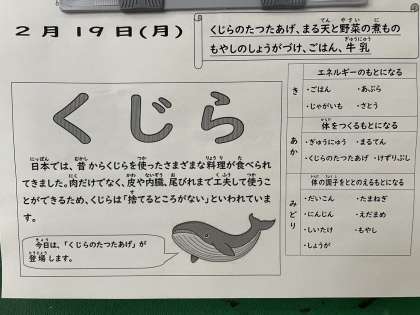 2月19日(月)
くじらのたつたあげ、まる天と野菜の煮もの
もやしのしょうがづけ、ごはん、牛乳
くじら
日本では、昔からくじらを使ったさまざまな料理が食べられ
てきました。肉だけでなく、皮や内臓、尾びれまで工夫して使うこ
とができるため、くじらは「捨てるところがない」といわれていま
す。
今日は、「くじらのたつたあげ」が
登場します。
き
エネルギーのもとになる
・ごはん ・あぶら
・じゃがいも ・さとう
あか
体をつくるもとになる
・ぎゅうにゅう ・まるてん
・くじらのたつたあげ ・けずりぶし
みどり
体の調子をととのえるもとになる
・だいこん ・たまねぎ
・にんじん ・えだまめ
・しいたけ ・もやし
・しょうが